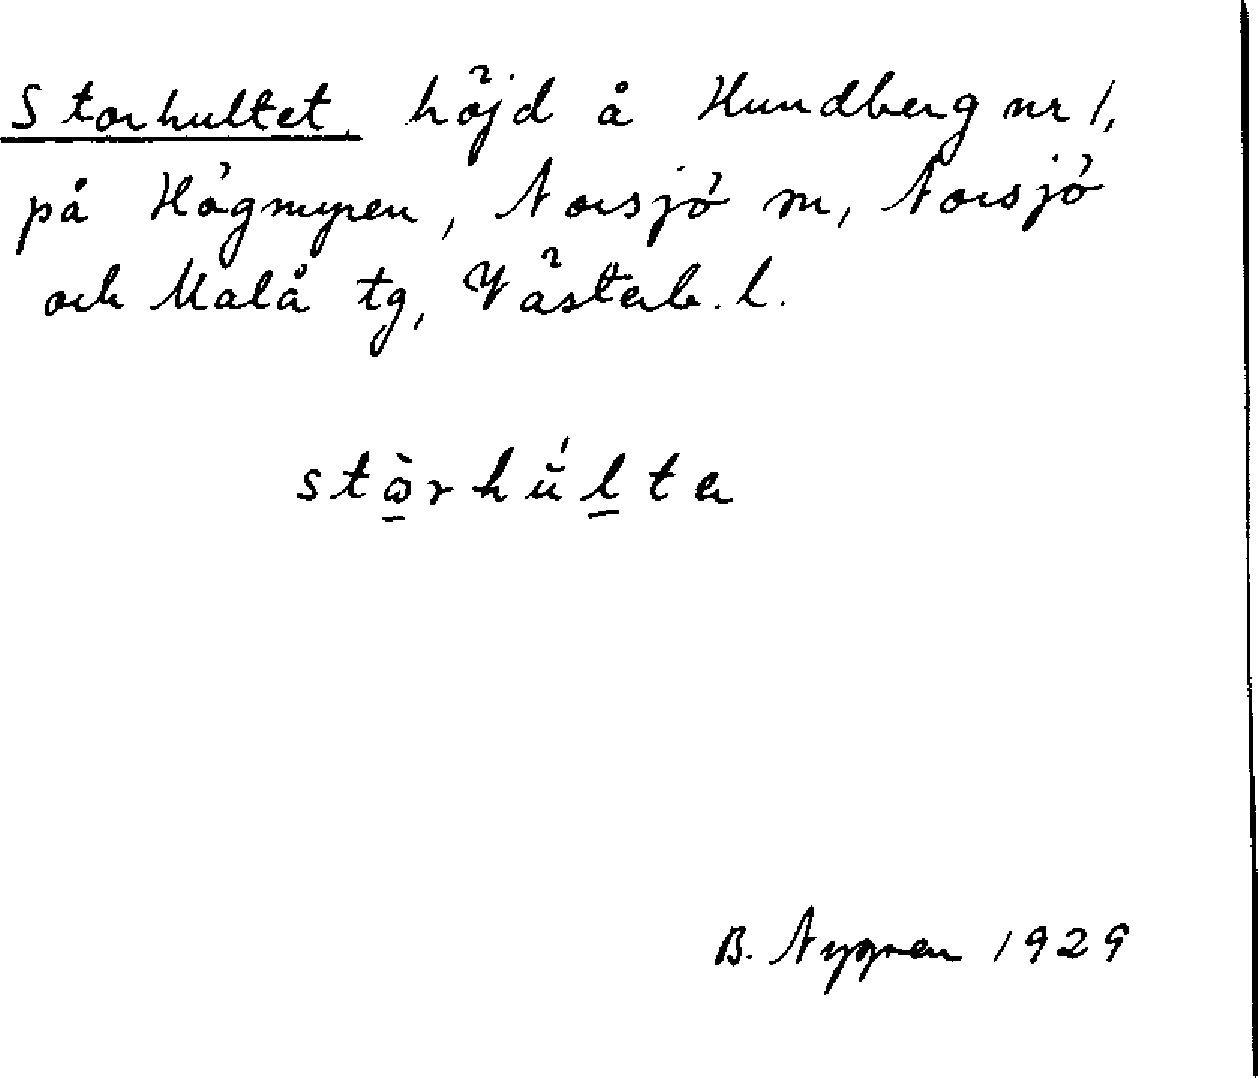 Storhultet, höjd å Hundberg nr 1,
på Högmyren, Norsjö sn, Norsjö
och Malå tg, Västerb. l.
stò̱rhŭ́ḻta
B. Nygren 1929